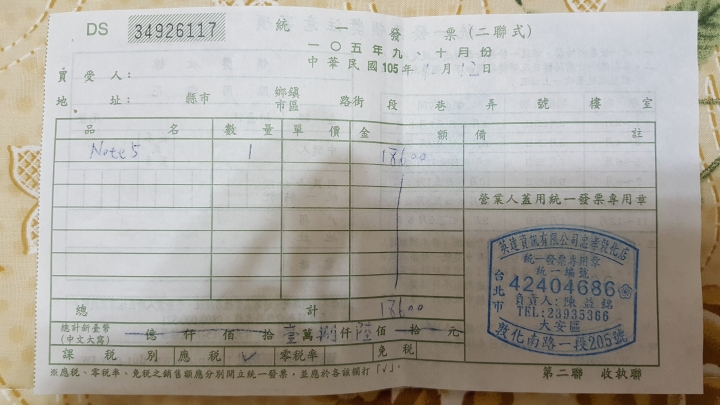 DS 34926117 統一發票(二聯式)
一〇五年九、十月份
中華民國105年 月12日
買受人:
地址: 縣市 鄉鎮市區 路街 段 巷 弄 號 樓 室
品名 數量 單價 金額 備註
Note 5 1 18600
營業人蓋用統一發票專用章
英建資訊有限公司忠孝敦化店
統一發票專用章
統一編號
台北市 42404686
負責人:陳益錦
TEL:23935366
大安區
敦化南路一段205號
總計 18600
總計新臺幣(中文大寫) 億 仟 佰 拾 壹萬 捌仟 陸佰 拾 元
課稅別 應稅 ✓ 零稅率 免稅
※應稅、零稅率、免稅之銷售額應分別開立統一發票,並應於各該欄打「√」。
第二聯 收執聯